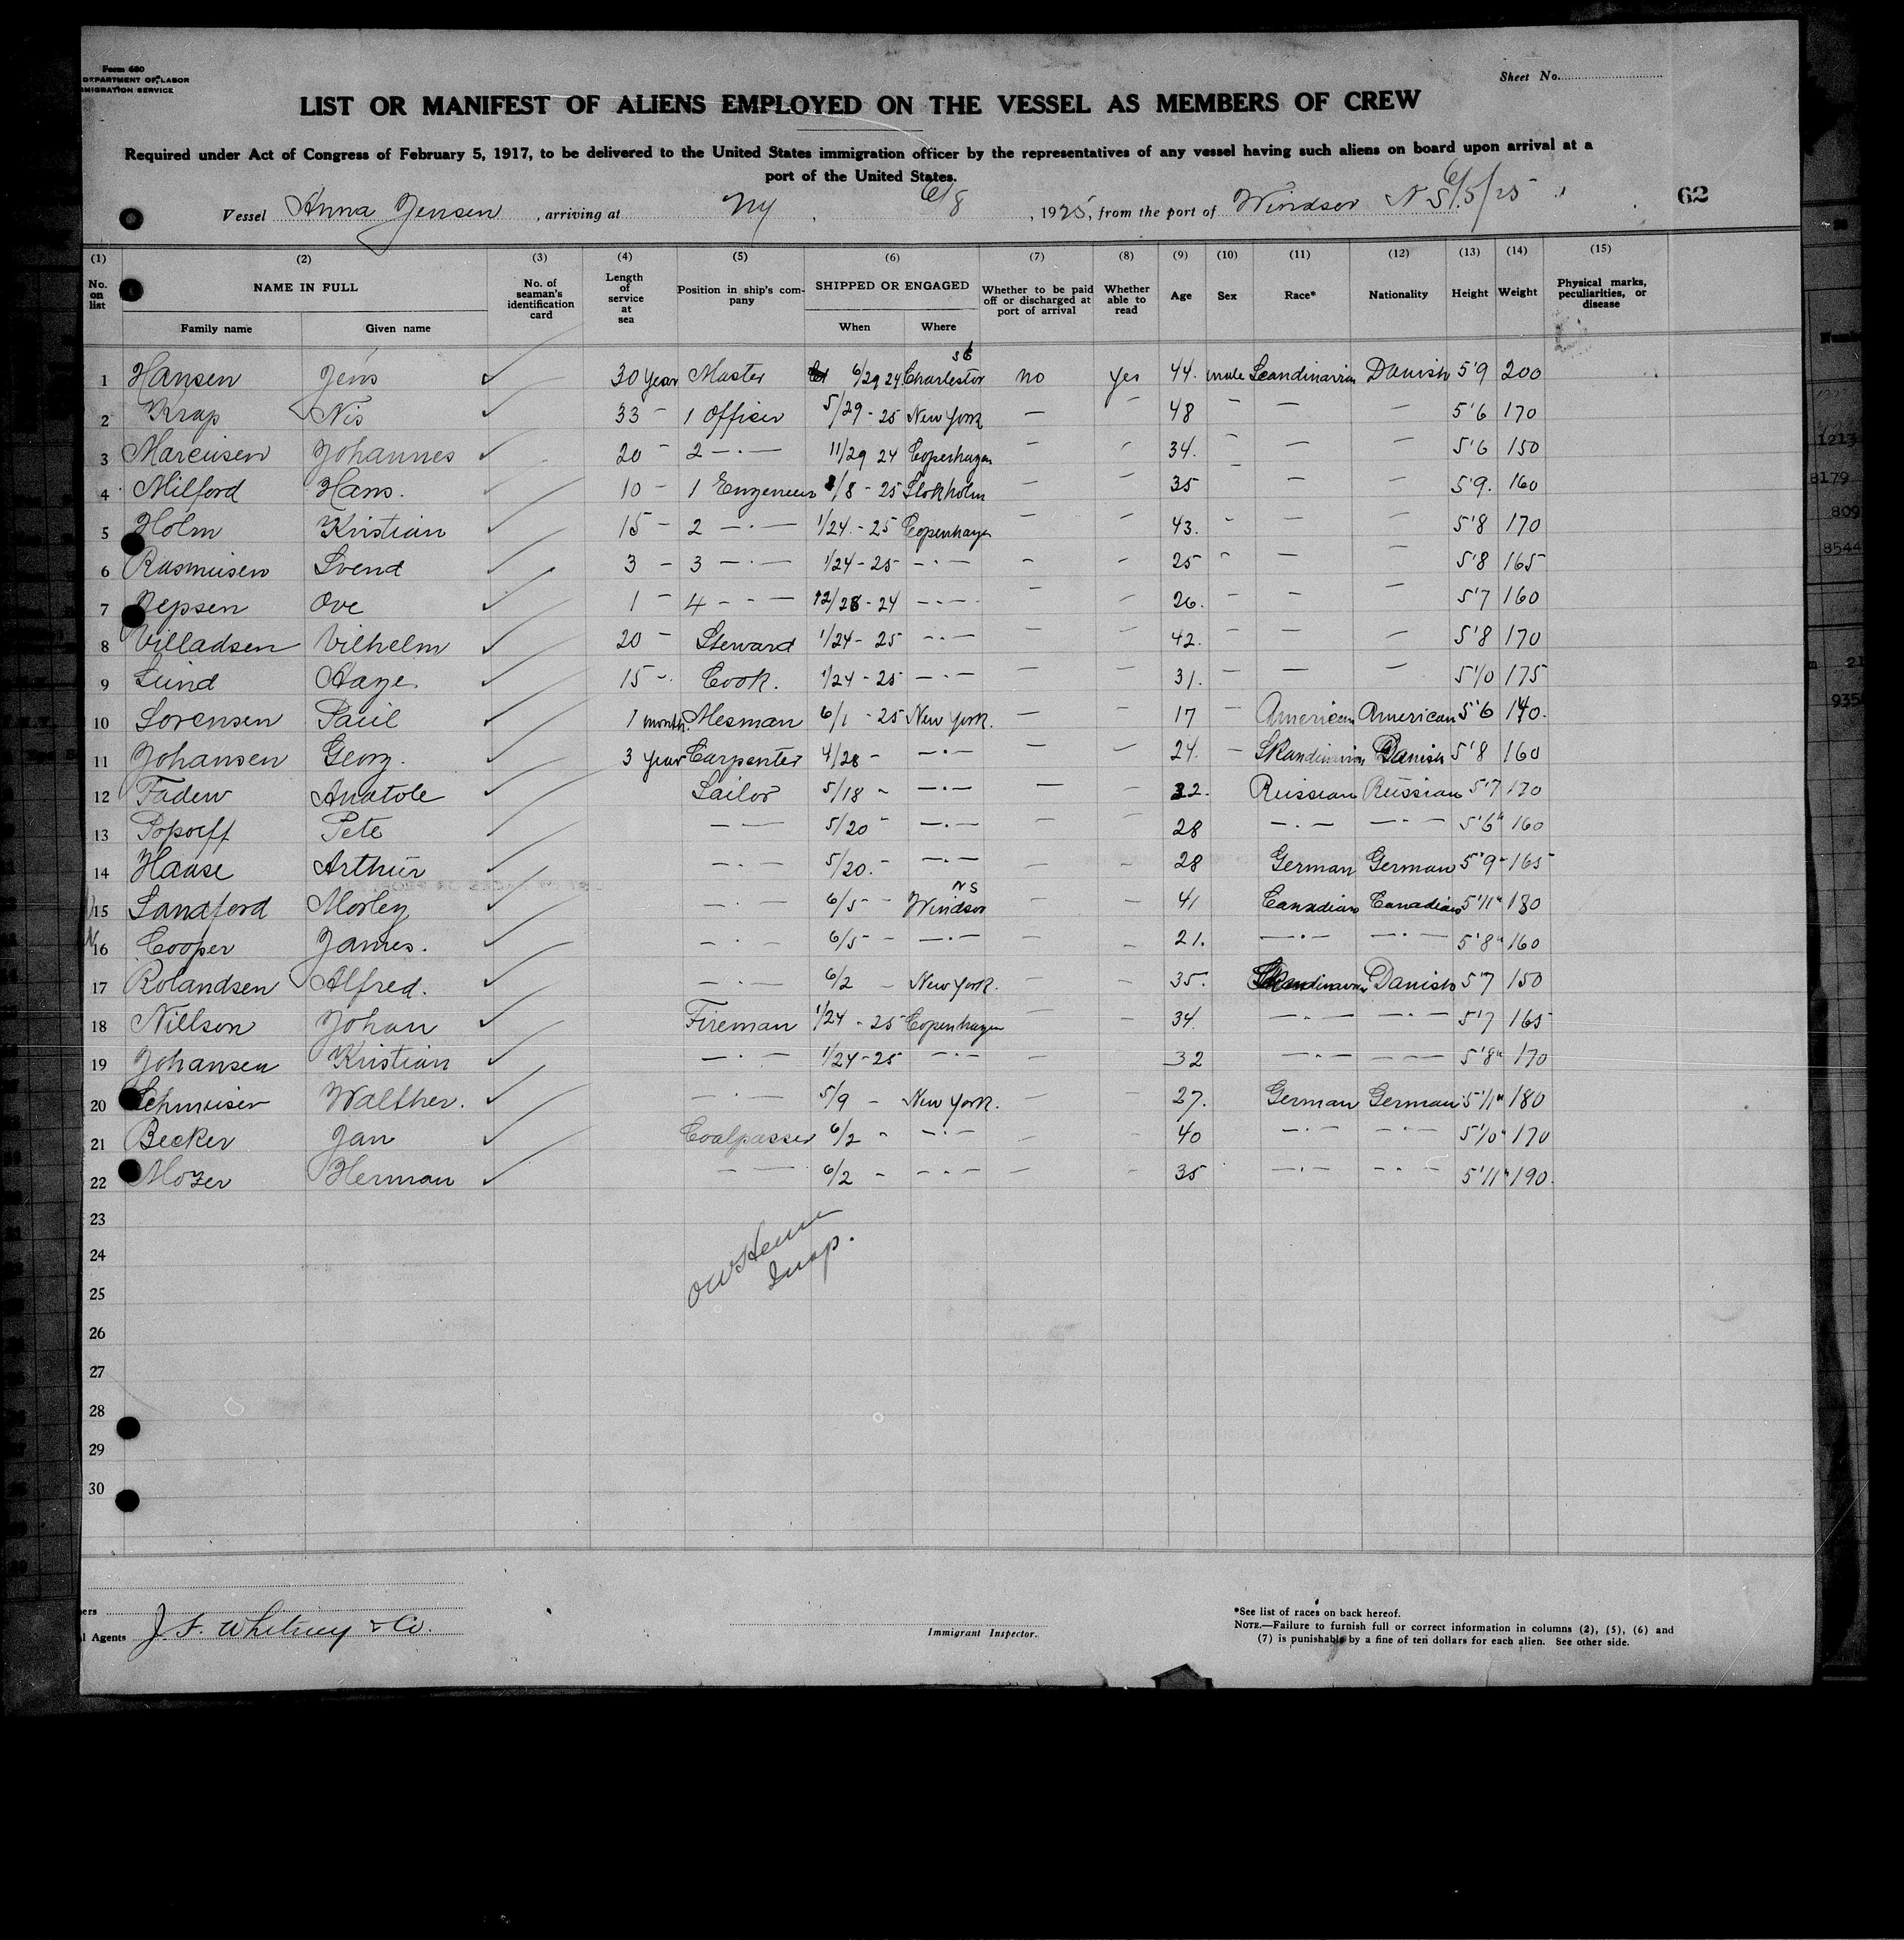 Form 680
DEPARTMENT OF LABOR
IMMIGRATION SERVICE
Sheet No.
LIST OR MANIFEST OF ALIENS EMPLOYED ON THE VESSEL AS MEMBERS OF CREW
Required under Act of Congress of February 5, 1917, to be delivered to the United States immigration officer by the representatives of any vessel having such aliens on board upon arrival at a
port of the United States.
Vessel Anna Jensen, arriving at NY, 6/8, 1925, from the port of Windsor N S. 6/5/25 62
(1) (2) (3) (4) (5) (6) (7) (8) (9) (10) (11) (12) (13) (14) (15)
No. on list NAME IN FULL Family name Given name No. of seaman's identification card Length of service at sea Position in ship's company SHIPPED OR ENGAGED When Where Whether to be paid off or discharged at port of arrival Whether able to read Age Sex Race* Nationality Height Weight Physical marks, peculiarities, or disease
1 Hansen Jens 30 year Master 6/29 24 Charleston no yes 44. male Scandinavian Danish 5'9 200
2 Krap Nis 33 - 1 Officer 5/29 - 25 New York - - 48 - - - 5'6 170
3 Marcusen Johannes 20 - 2 -·- 11/29 24 Copenhagen - - 34. - - - 5'6 150
4 Milford Hans. 10 - 1 Engeneer 8/8 - 25 Stokholm - - 35 - - - 5'9. 160
5 Holm Kristian 15 - 2 -·- 1/24 - 25 Copenhagen - - 43. - - - 5'8 170
6 Rasmusen Svend 3 - 3 -·- 1/24 - 25 -·- - - 25 - - - 5'8 165
7 Jepsen Ove 1 - 4 - - - 12/28 - 24 -·- - - 26. - - - 5'7 160
8 Villadsen Vilhelm 20 - Steward 1/24 - 25 -·- - - 42. - - - 5'8 170
9 Lund Aage 15 - Cook. 1/24 - 25 -·- - - 31. - - - 5'10 175
10 Sorensen Paul 1 month. Mesman 6/1 - 25 New York. - - 17 - American American 5'6 140.
11 Johansen Georg. 3 year Carpenter 4/28 - -·- - - 24. - Skandinavian Danish 5'8 160
12 Fadew Anatole Sailor 5/18 - -·- - - 32. Russian Russian 5'7 170
13 Popoff Pete - - 5/20 - -·- - - 28 -·- -·- 5'6" 160
14 Haase Arthur -·- 5/20. - -·- - - 28 German German 5'9" 165
15 Sandford Morley -·- 6/5 - Windsor NS - - 41 Canadian Canadian 5'11" 180
16 Cooper James. -·- 6/5 - -·- - - 21. -·- -·- 5'8" 160
17 Rolandsen Alfred. -·- 6/2 - New York. - 35. Skandinavian Danish 5'7 150
18 Nillson Johan Fireman 1/24 - 25 Copenhagen - - 34. -·- -·- 5'7 165
19 Johansen Kristian -·- 1/24 - 25 -·- - - 32 -·- - - 5'8" 170
20 Walther. -·- 5/9 - New York. - - 27. German German 5'11" 180
21 Becker Jan Coalpasser 6/2 - -·- - - 40 -·- -·- 5'10" 170
22 Mozer Herman - - 6/2 - -·- - - 35 -·- -·- 5'11" 190.
23
24
25
26
27
28
29
30
Insp.
Agents J. F. Whitney & Co.
Immigrant Inspector.
*See list of races on back hereof.
NOTE.—Failure to furnish full or correct information in columns (2), (5), (6) and
(7) is punishable by a fine of ten dollars for each alien. See other side.
1213
8179
809
8544
21
935